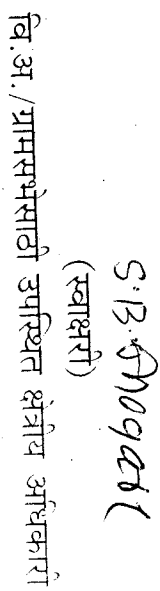 S.B. Bhogade
(स्वाक्षरी)
वि.अ./ग्रामसभेसाठी उपस्थित क्षेत्रीय अधिकारी